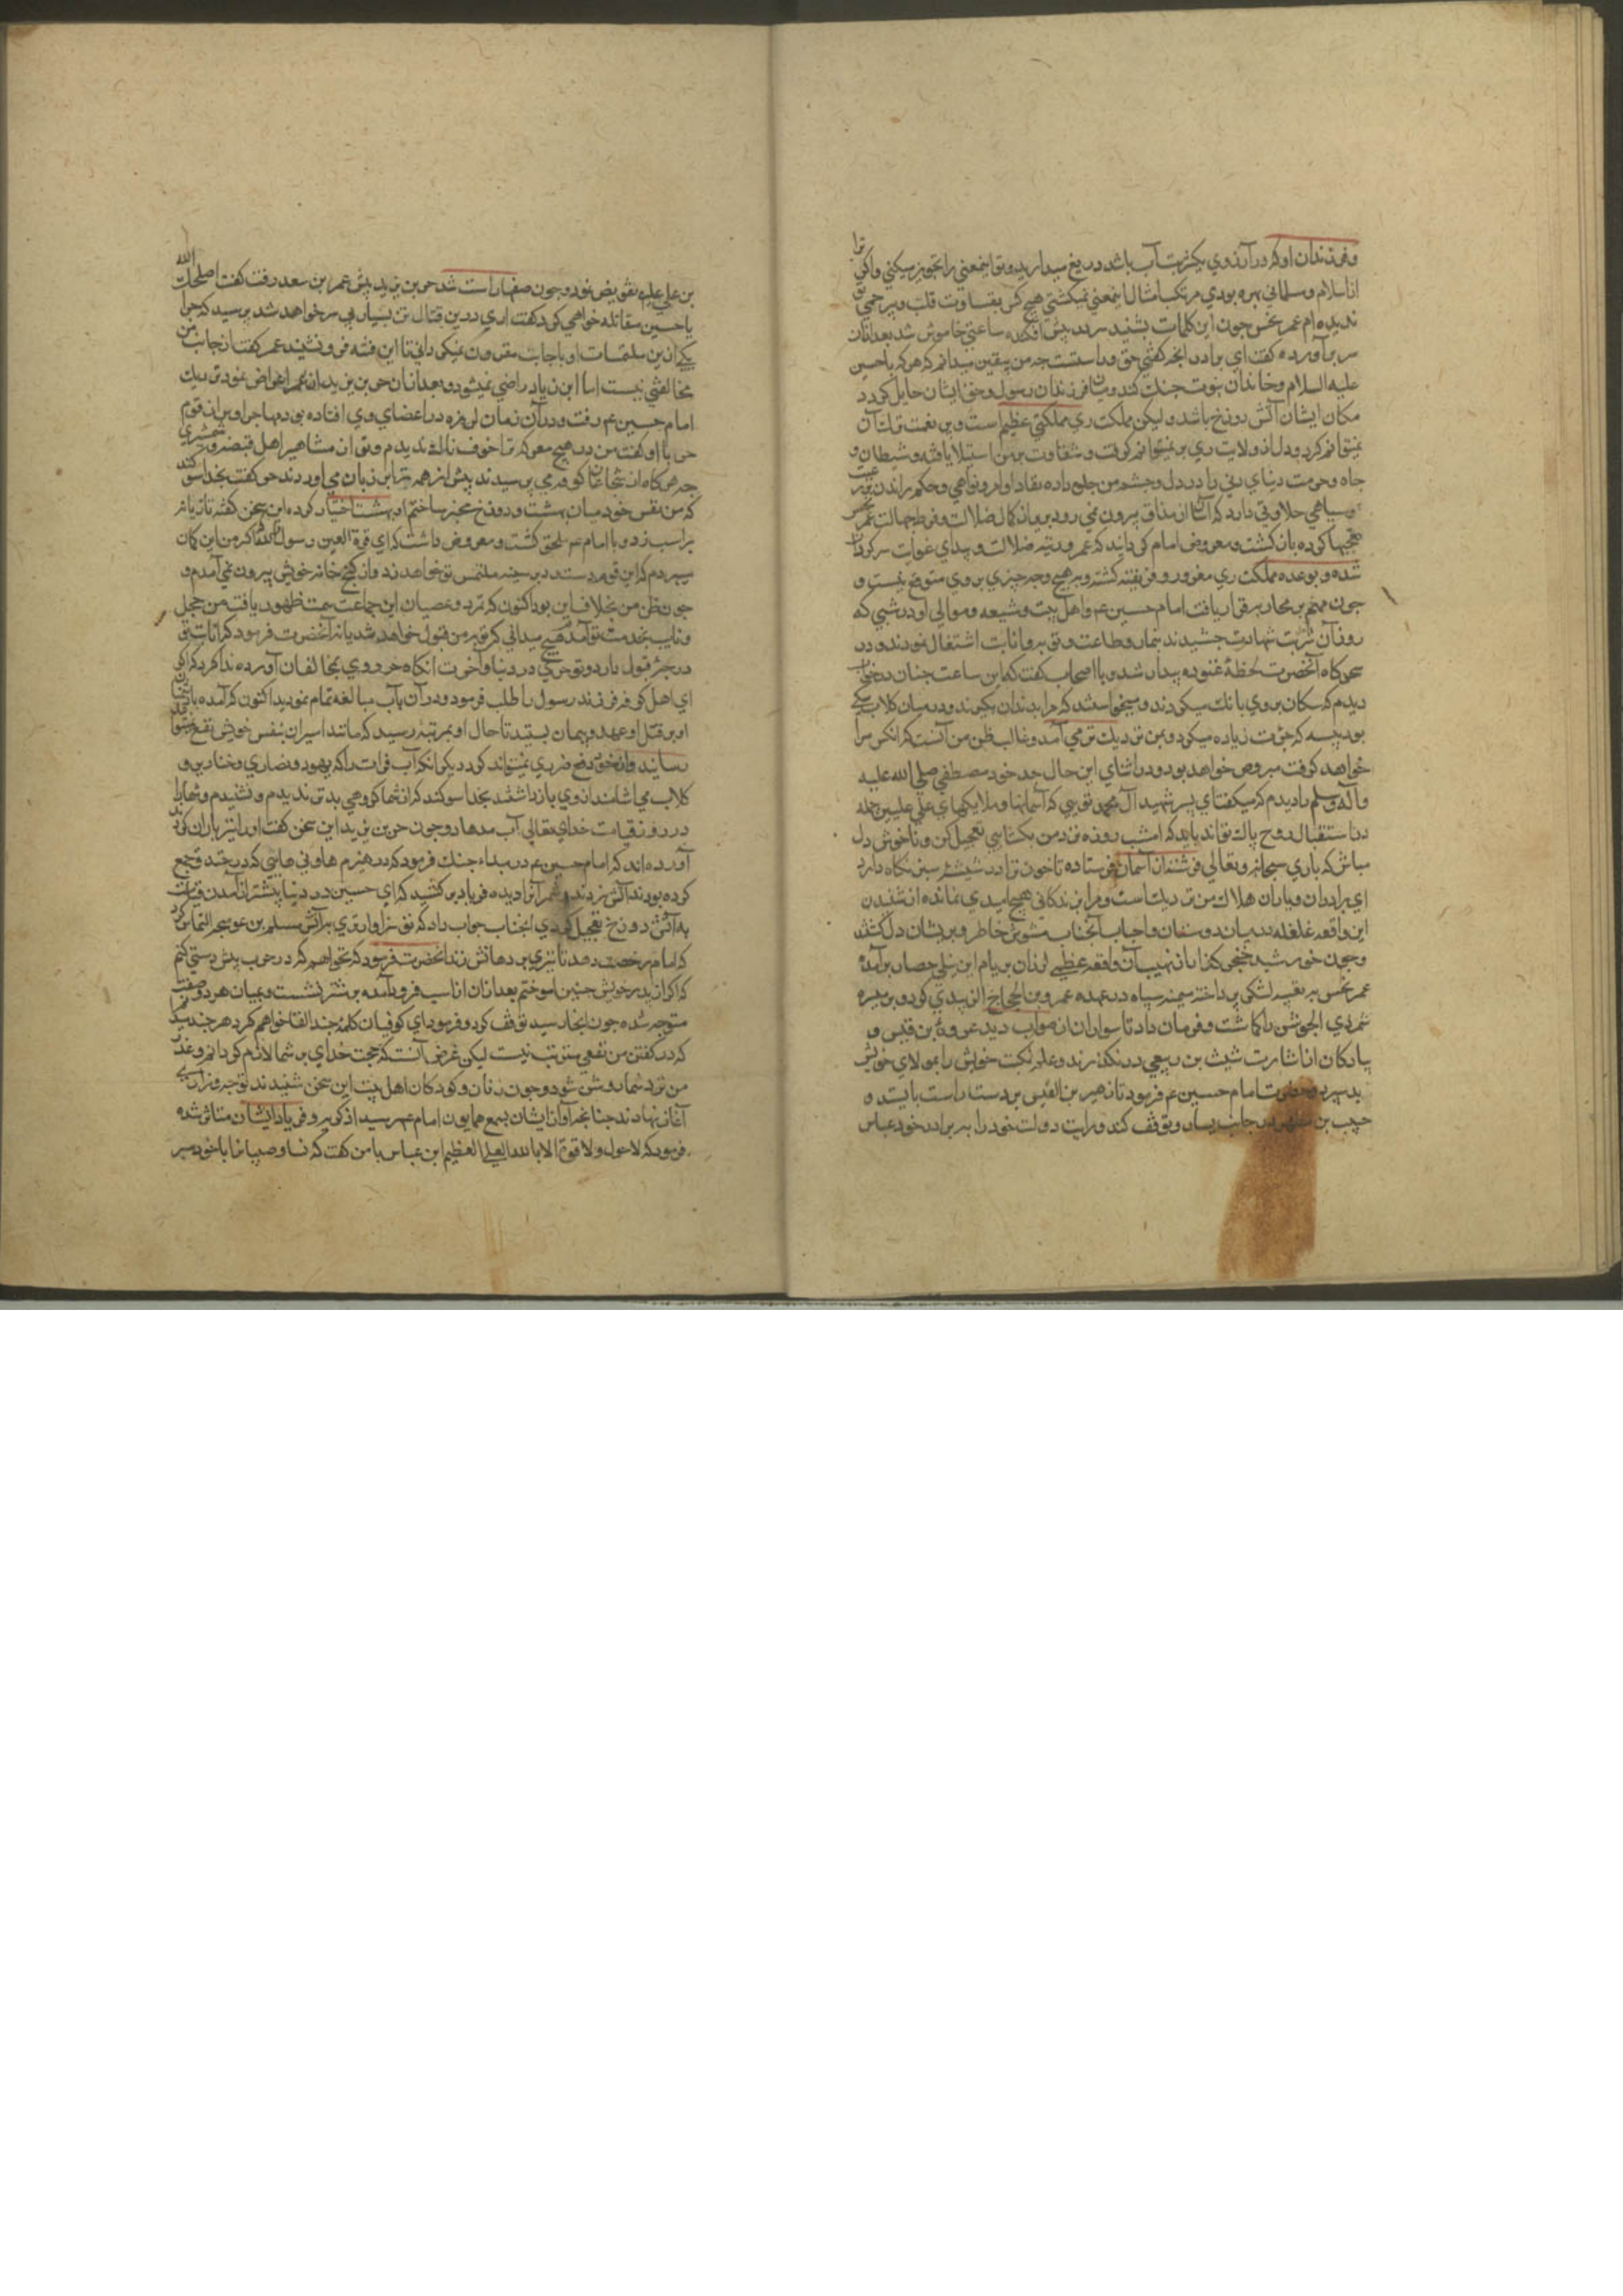 و فرزندان او که در آرزوي يکشربت آب باشد دريغ ميداريد و تو اينمعني را تجويز ميکني واکر ترا
از اسلام و مسلماني بهره بودي مرتکب امثال اينمعني نميکشتي هيچ کس بقساوت قلب و بيرحمي تو
نديده ام عمر نحس چون اين کلمات بشنيد سر در پيش افکنده ساعتي خاموش شد بعد ازان
سر برآورده کفت اي برادر انچه کفتي حق و راستست چه من بيقين ميدانم که هر که با حسين
عليه السلام و خاندان نبوت جنک کند و ميان فرزندان رسول و حق ايشان حايل کردد
مکان ايشان آتش دوزخ باشد و ليکن مملکت ري مملکتي عظيم است و بر نعمت ترک آن
نميتوانم کرد و دل از ولايت ري بر نميتوانم کرفت و شقاوت بر من استيلا يافته و شيطان
جاه و حرمت دنياي دني را در دل و چشم من جلوه داده نفاذ اوامر و نواهي و حکم راندن بر
و سپاهي حلاوتي دارد که آسان از مذاق بيرون نمي رود بريد از کمال ضلالت و فرط جهالت عمر نحس
تعجبها کرده باز کشت و معروض امام کردانيد که عمر در تيه ضلالت و بيداي غوايت سرکردان
شده و بوعده مملکت ري مغرور و فريفته کشته و بر هيچ وجه چيزي بروي متوقع نيست و
چون مهم بر محاربه قرار يافت امام حسين عم و اهل بيت و شيعه و موالي او در شبي که
روز آن شربت شهادت چشيدند بنماز و طاعت و توبه و انابت اشتغال نمودند و در
سحرکاه آنحضرت لحظهٔ غنوده بيدار شد و با اصحاب کفت که اين ساعت چنان در خواب
ديدم که سکان بروي بانک ميکردند و ميخواستند که مرا بدندان بکيرند و در ميان کلاب سکي
بود پيسه که جرٔت زياده ميکرد و بمن نزديک تر مي آمد و غالب ظن من آنست که انکس مرا
خواهد کوفت مبروص خواهد بود و در اثناي اين حال جد خود مصطفي صلي الله عليه
و آله و سلم را ديدم که ميکفت اي پسر شهيد آل محمد تويي که آسمانها و ملايکهاي علي عليين جمله
در استقبال روح پاک تواند بايد که امشب روزه نزد من بکشايي تعجيل کن و ناخوش دل
مباش که باري سبحانه و تعالي فرشته از آسمان فرستاده تا خون ترا در شيشهٔ سبز نکاه دارد
اي برادران و ياران هلاک من نزديک است و مرا بزندکاني هيچ اميدي نمانده از شنيدن
اين واقعه غلغله در ميان دوستان و احباب آنجناب مشوش خاطر و پريشان دل کشتند
و چون خورشيد خنجر کذار از نهيب آن واقعه عظيم لرزان بر بام اين نيلي حصار برآمد
عمر نحس به تعبيه لشکر پرداخته ميمنه سپاه در عهده عمرو بن الحجاج الزبيدي کرد و بر ميسره
شمر ذي الجوشن را کماشت و فرمان داد تا سواران از صواب ديد عروة بن قيس و
پيادکان از اشارت شبث بن ربعي درنکذرند و علم نکبت خويش را بمولاي خويش
بد سپرد و حضرت امام حسين عم فرمود تا زهير بن القيس بر دست راست بايستد و
حبيب بن مظهر در جانب يسار و توقف کند و رايت دولت خود را به برادر خود عباس
بن علي عليه تفويض نمود و چون صفها راست شد حر بن يزيد پيش عمر بن سعد رفت کفت اصلحک الله
با حسين مقاتله خواهي کرد کفت اري درين قتال تن بسيار بي سر خواهد شد پرسيد که چرا
يکي ازين ملتمسات او باجابت مقرون نميکرداني تا اين فتنه فرو نشيند عمر کفت از جانب من
مخالفتي نيست اما ابن زياد راضي نميشود و بعد ازان حر بن يزيد از عمر اعراض نمود نزديک
امام حسين عم رفت و در آن زمان لرزه در اعضاي وي افتاده بود مهاجر اوس از قوم
حر با او کفت من در هيچ معرکه ترا خوف ناک نديدم و تو از مشاهير اهل قبضه و شمشيري
چه هرکاه از شجاعان کوفه مي پرسيدند پيش از همه ترا بر زبان مي اوردند حر کفت بخدا سوکند
که من نفس خود ميان بهشت و دوزخ مخير ساختم او بهشت اختيار کرد اين سخن کفته تازيانه
بر اسب زد و با امام عم ملحق کشت و معروض داشت که اي قرة العين رسول الله اکر من اين کمان
ميبردم که اين قوم دست رد بر سينه ملتمس تو خواهند زد از کنج خانه خويش بيرون نمي آمدم و
چون ظن من بخلاف اين بود اکنون که تمرد و عصيان اين جماعت سمت ظهور يافت من خجل
و تايب بخدمت تو آمدم هيچ ميداني که توبه من قبول خواهد شد يا نه آنحضرت فرمود که انابت تو
درجهٔ قبول دارد و تو حري در دنيا و آخرت انکاه حر روي بمخالفان آورده ندا کرد که
اي اهل کوفه فرزند رسول را طلب فرموديد و در آن باب مبالغه تمام نموديد اکنون که آمده
او بر قتل او عهد و پيمان بستيد تا حال او بمرتبهٔ رسيد که مانند اسيران بنفس خويش نفع نتواند
رسانيد و از خود دفع ضرري نميتواند کرد ديکر انکه آب فرات را که يهود و نصاري و خنازير و
کلاب مي اشامند از وي باز داشتند بخدا سوکند که از شما کروهي بدتر نديدم و نشنيدم و شما را
در روز قيامت خداي تعالي آب مدهاد و چون حر بن يزيد اين سخن کفت او را تير باران کردند
آورده اند که امام حسين عم در مبداء جنک فرمود که در هيزم ها و ني هايي که در خندق جمع
کرده بودند آتش زدند و شمر آنرا ديده فرياد بر کشيد که اي حسين در دنيا پيشتر از آمدن قيامت
به آتش دوزخ تعجيل کردي انجناب جواب داد که تو سزاوارتري به آتش مسلم بن عوسجه التماس کرد
که امام رخصت دهد تا تيري بر دهانش زند انحضرت فرمود که نخواهم که در حرب پيش دستي کنم
که اکر از پدر خويش چنين آموختم بعد ازان از اسپ فرود آمده بر شتر نشست و بميان هر دو صف
متوجه شده چون انجا رسيد توقف کرد و فرمود اي کوفيان کلمهٔ چند القا خواهم کرد هر چند ميدانم
که در کفتن من نفعي مترتب نيست ليکن غرض آنست که حجت خداي بر شما لازم کردانم و عذر
من نزد شما روشن شود و چون زنان و کودکان اهل بيت اين سخن شنيدند نوحه و زاري
آغاز نهادند چنانچه آواز ايشان بسمع همايون امام عم رسيد از کريه و فرياد ايشان متاثر شده
فرمود که لاحول ولا قوة الا بالله العلي العظيم ابن عباس با من کفت که نسا و صبيانرا با خود مبر